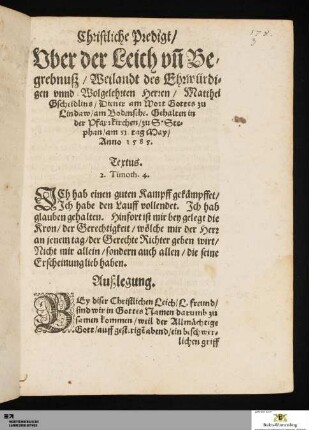 Christliche Predigt/
Vber der Leich vñ Be-
grebnuß/ Weilandt des Ehrwürdi-
gen vnnd Wolgelehrten Herren/ Matthei
Gscheidlins/ Diener am Wort Gottes zu
Lindaw/ am Bodensehe. Gehalten in
der Pfarrkirchen/ zu S. Ste-
phan/ am 11 tag May/
Anno 1585.
Textus.
2. Timoth. 4.
ICh hab einen guten Kampff gekämpffet/
Ich habe den Lauff vollendet. Ich hab
glauben gehalten. Hinfort ist mir bey gelegt die
Kron/ der Gerechtigkeit/ wölche mir der Herr
an jenem tag/ der Gerechte Richter geben wirt/
Nicht mir allein/ sondern auch allen/ die seine
Erscheinung lieb haben.
Außlegung.
BEy diser Christlichen Leich/ L. freund/
sind wir in Gottes Namen darumb zu
samen kommen/ weil der Allmächtige
Gott/ auff gest.rigẽ abend/ ein beschwer-
lichen griff
Baden-Württemberg